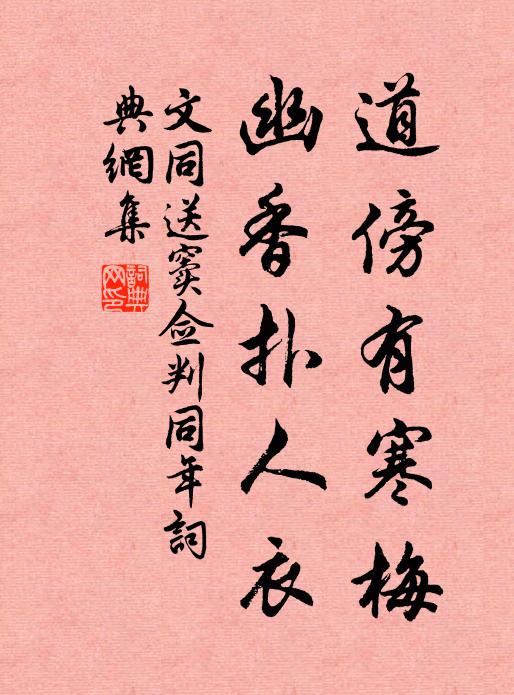 道傍有寒梅
幽香扑人衣
文同送窦佥判同年詞
典網集
詞典网印